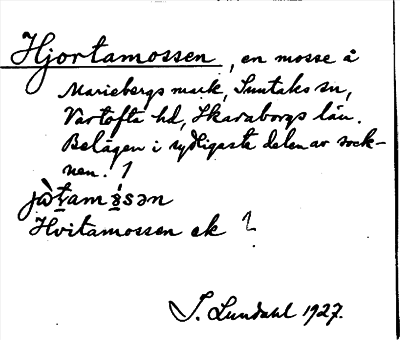 Hjortamossen, en mosse å
Mariebergs mark, Suntaks sn,
Vartofta hd, Skaraborgs län.
Belägen i sydligaste delen av sock-
nen. 1
jɷ̀t̠am s̠ən
Hvitamossen ek ?
S. Lundahl 1927.